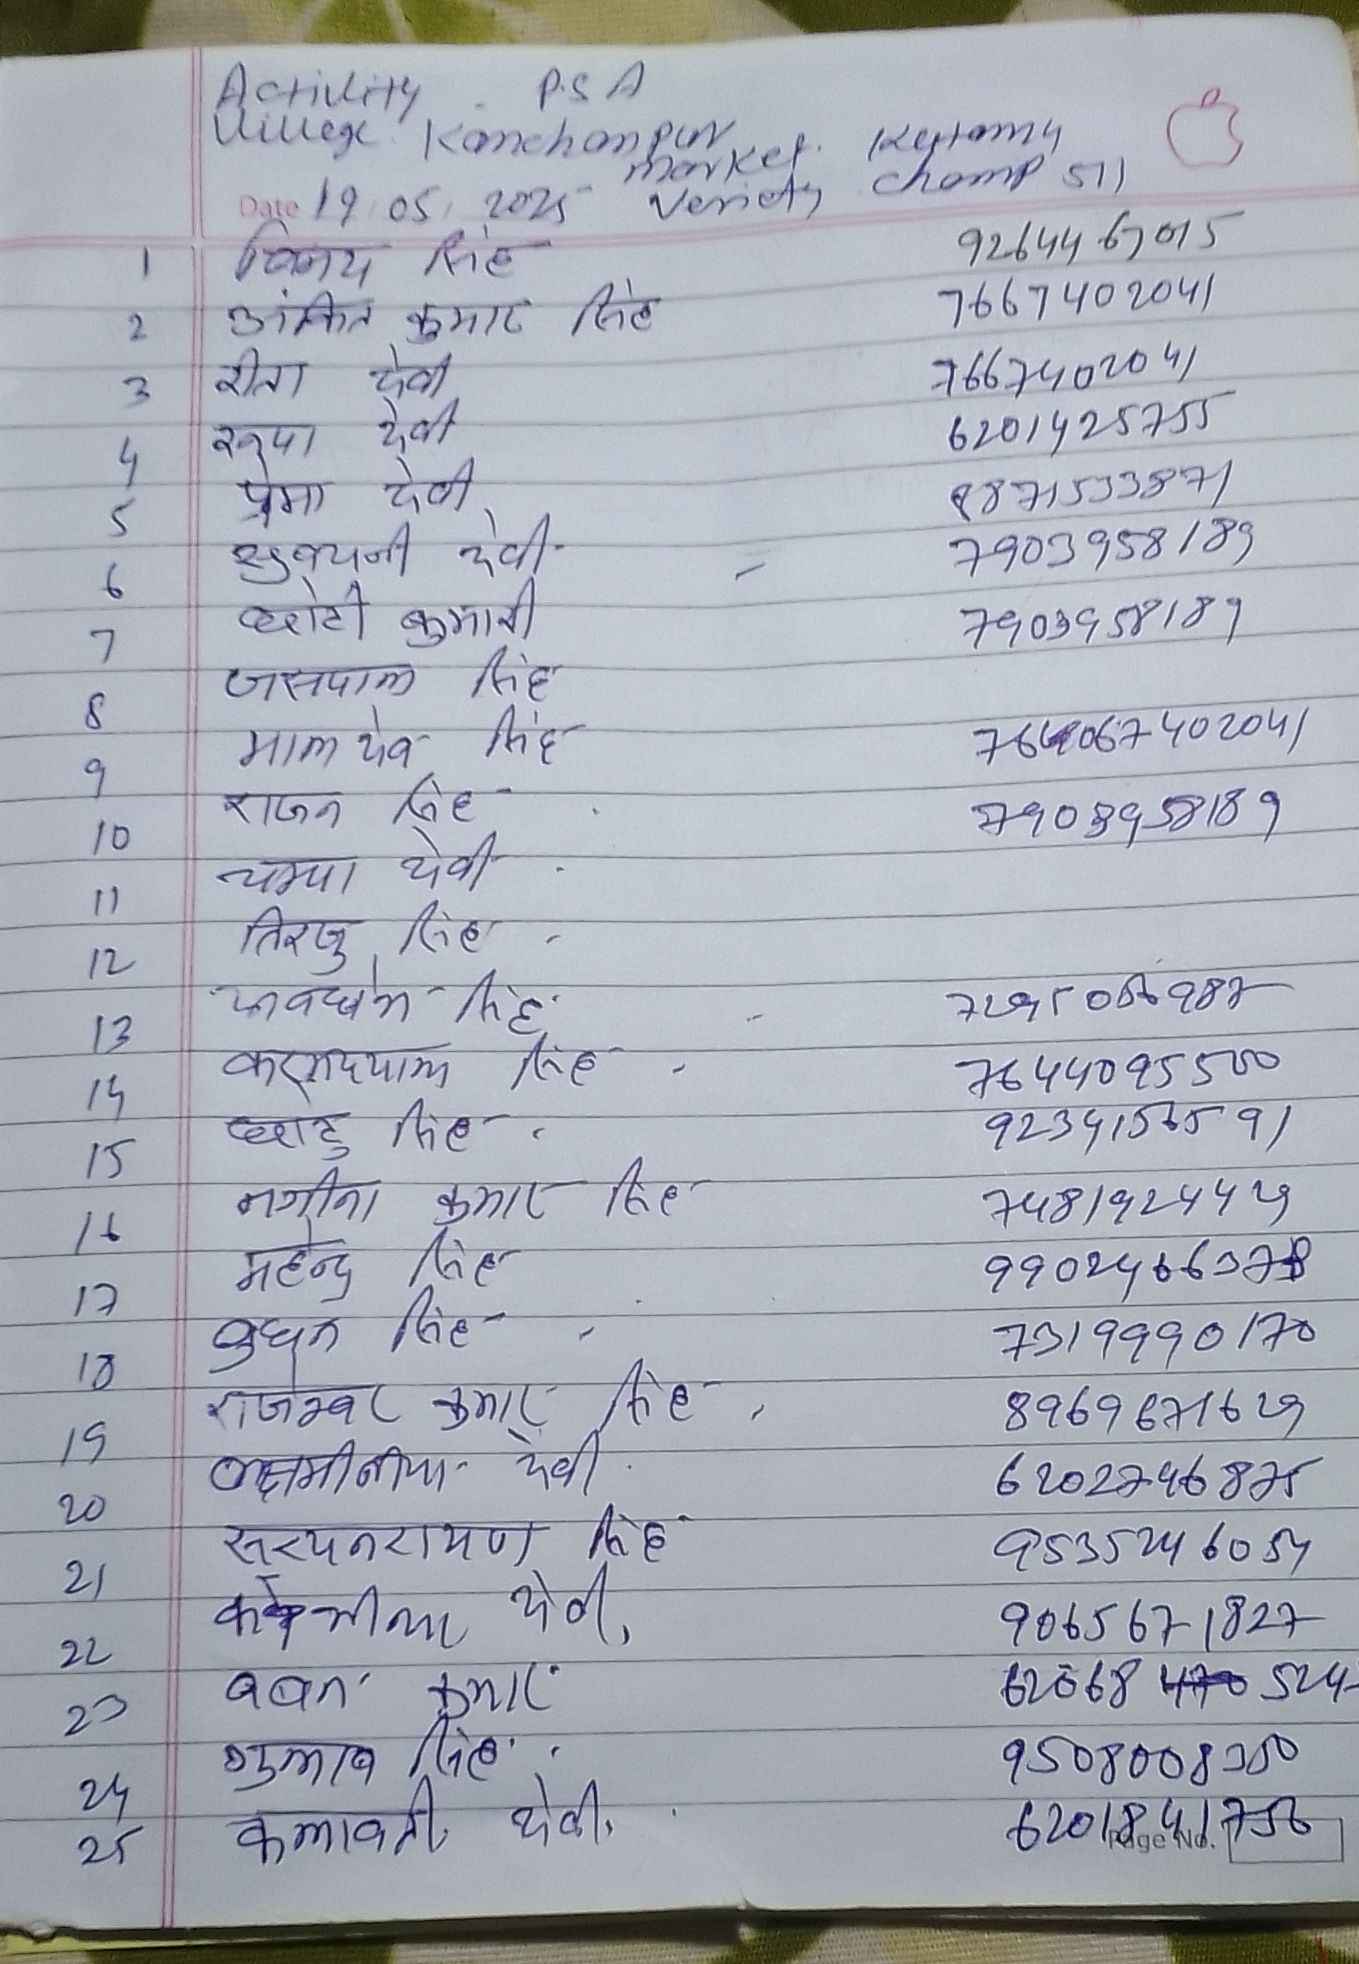 Activity . P.S A
Village. Kanchanpur market. Kertamy
Date 19.05.2025 Veriety Champ 511
1 विनय सिंह 9264467015
2 अंकित कुमार सिंह 7667402041
3 रीता देवी 7667402041
4 रूपा देवी 6201425755
5 प्रेमा देवी 8871533871
6 देवी - 7903958189
7 छोटी कुमारी 7903958189
8 जसपाल सिंह
9 मालदेव सिंह 7667402041
10 राजन सिंह 7903958189
11 चम्पा देवी
12 तिरजु सिंह
13 सिंह 7295086987
14 सिंह 7644095500
15 छोटु सिंह 9234156591
16 नगीना कुमार सिंह 7481924429
17 महेन्द्र सिंह 9902466378
18 बुधन सिंह 7319990170
19 राजेश्वर कुमार सिंह 8969671629
20 लक्ष्मीनीया देवी 6202746875
21 सत्यनरायण सिंह 9535246054
22 देवी 9065671827
23 बबन कुमार 62068 524
24 गुलाब सिंह 9508008350
25 कलावती देवी 6201841756
Page No.